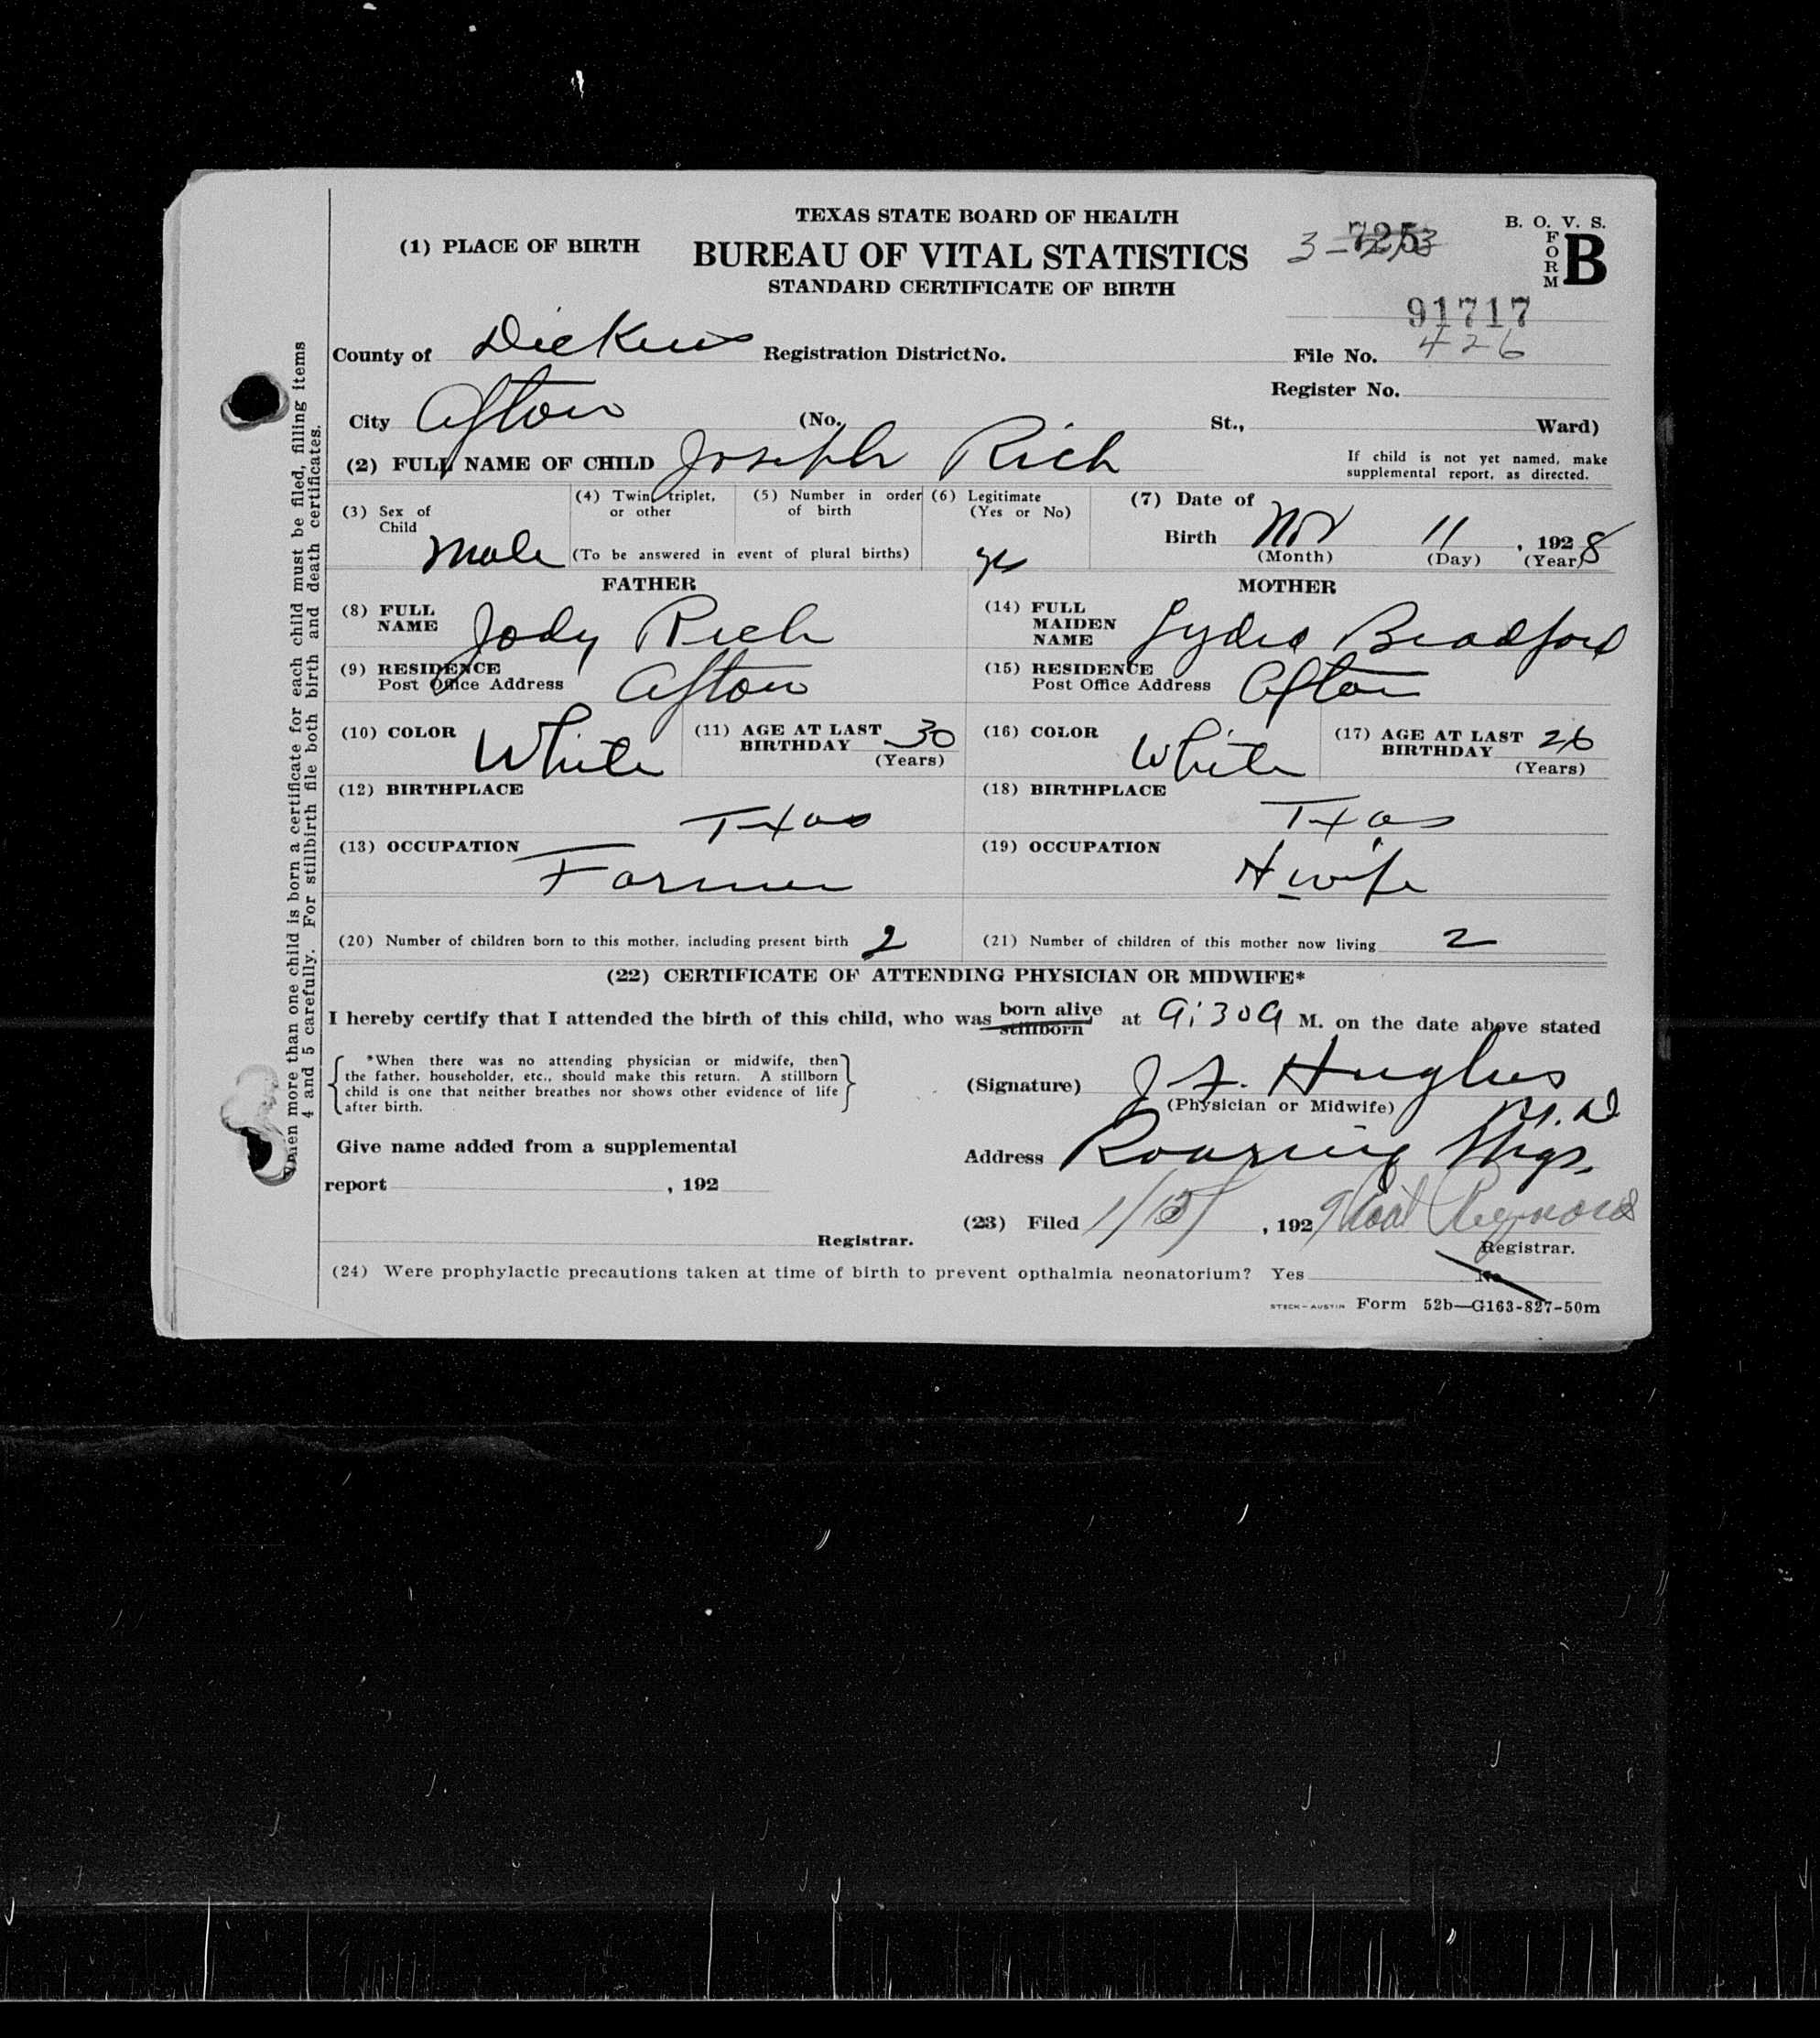 TEXAS STATE BOARD OF HEALTH
(1) PLACE OF BIRTH
BUREAU OF VITAL STATISTICS
STANDARD CERTIFICATE OF BIRTH
B. O. V. S.
FORM B
91717
County of Dickens Registration District No. File No. 426
Register No.
City Afton (No. St., Ward)
(2) FULL NAME OF CHILD Joseph Rich
If child is not yet named, make
supplemental report, as directed.
(3) Sex of Child Male
(4) Twin, triplet, or other
(5) Number in order of birth
(To be answered in event of plural births)
(6) Legitimate (Yes or No) yes
(7) Date of Birth Nov 11, 1928
(Month) (Day) (Year)
FATHER
(8) FULL NAME Jody Rich
(9) RESIDENCE Post Office Address Afton
(10) COLOR White
(11) AGE AT LAST BIRTHDAY 30 (Years)
(12) BIRTHPLACE Texas
(13) OCCUPATION Farmer
MOTHER
(14) FULL MAIDEN NAME Lydia Bradford
(15) RESIDENCE Post Office Address Afton
(16) COLOR White
(17) AGE AT LAST BIRTHDAY 26 (Years)
(18) BIRTHPLACE Texas
(19) OCCUPATION H wife
(20) Number of children born to this mother, including present birth 2
(21) Number of children of this mother now living 2
(22) CERTIFICATE OF ATTENDING PHYSICIAN OR MIDWIFE*
I hereby certify that I attended the birth of this child, who was born alive stillborn at 9:30 A M. on the date above stated
*When there was no attending physician or midwife, then
the father, householder, etc., should make this return. A stillborn
child is one that neither breathes nor shows other evidence of life
after birth.
(Signature) J. F. Hughes M.D
(Physician or Midwife)
Address Roaring Spgs.
Give name added from a supplemental
report , 192
(23) Filed , 1929 Reynolds
Registrar.
Registrar.
(24) Were prophylactic precautions taken at time of birth to prevent opthalmia neonatorium? Yes No
STECK-AUSTIN Form 52b—G163-827-50m
When more than one child is born a certificate for each child must be filed, filling items
4 and 5 carefully. For stillbirth file both birth and death certificates.